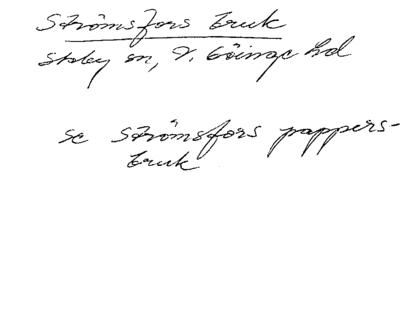 Strömsfors bruk
Stoby sn, V. Göinge hd
se Strömsfors pappers-
bruk